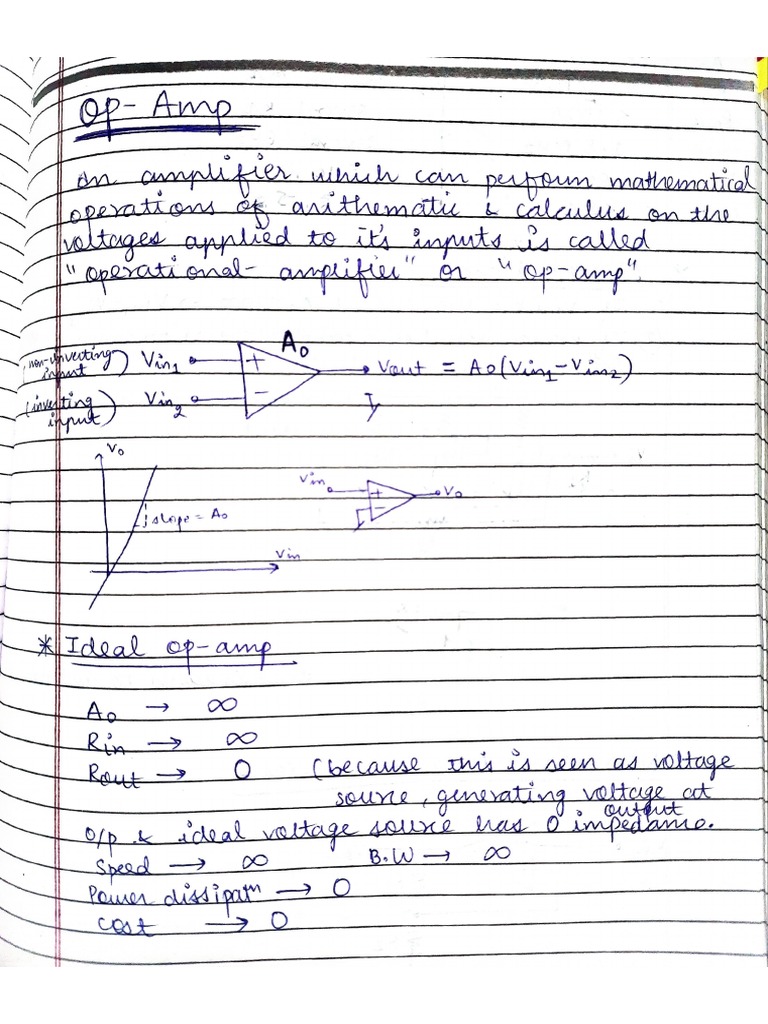 Op-Amp
An amplifier which can perform mathematical
operations of arithematic & calculus on the
voltages applied to it's inputs is called
"operational-amplifier" or "op-amp".
A₀
(non-inverting input) Vin₁ + Vout = A₀(Vin₁-Vin₂)
(inverting input) Vin₂ -
V₀
slope = A₀
Vin
Vin + - V₀
* Ideal op-amp
A₀ → ∞
Rin → ∞
Rout → 0 (because this is seen as voltage
source, generating voltage at
o/p & ideal voltage source has 0 output impedance.
Speed → ∞ B.W → ∞
Power dissipatⁿ → 0
cost → 0